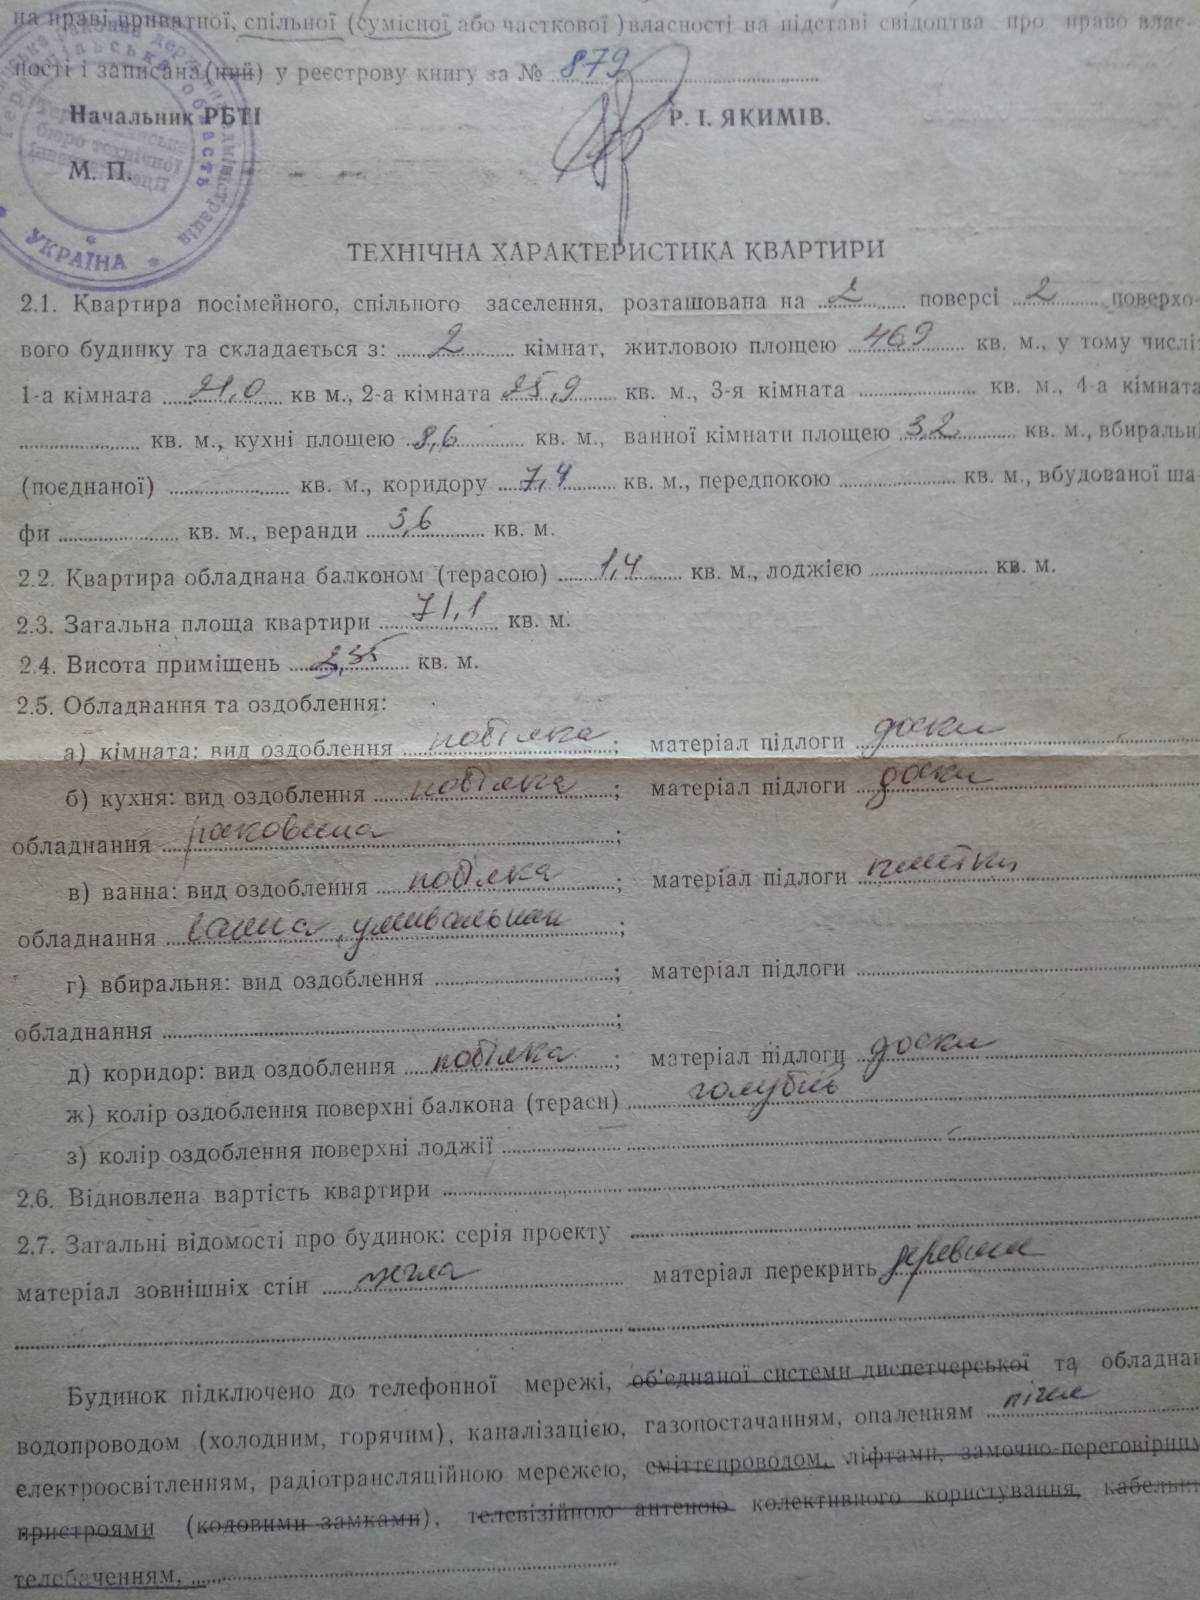 на праві приватної, спільної (сумісної або часткової ) власності на підставі свідоцтва про право влас-
ності і записана (ний) у реєстрову книгу за № 879
Начальник РБТІ Р. І. ЯКИМІВ.
М. П.
УКРАЇНА
ТЕХНІЧНА ХАРАКТЕРИСТИКА КВАРТИРИ
2.1. Квартира посімейного, спільного заселення, розташована на 2 поверсі 2 поверхо-
вого будинку та складається з: 2 кімнат, житловою площею 46,9 кв. м., у тому числі:
1-а кімната 21,0 кв м., 2-а кімната 25,9 кв. м., 3-я кімната кв. м., 4-а кімната
кв. м., кухні площею 8,6 кв. м., ванної кімнати площею 3,2 кв. м., вбиральні
(поєднаної) кв. м., коридору 7,4 кв. м., передпокою кв. м., вбудованої ша-
фи кв. м., веранди 3,6 кв. м.
2.2. Квартира обладнана балконом (терасою) 1,4 кв. м., лоджією кв. м.
2.3. Загальна площа квартири 71,1 кв. м.
2.4. Висота приміщень 2,35 кв. м.
2.5. Обладнання та оздоблення:
а) кімната: вид оздоблення побілка; матеріал підлоги доски
б) кухня: вид оздоблення побілка; матеріал підлоги доски
обладнання раковина;
в) ванна: вид оздоблення побілка; матеріал підлоги плитки
обладнання ванна, умивальник;
г) вбиральня: вид оздоблення; матеріал підлоги
обладнання;
д) коридор: вид оздоблення побілка; матеріал підлоги доски
ж) колір оздоблення поверхні балкона (тераси) голубий
з) колір оздоблення поверхні лоджії
2.6. Відновлена вартість квартири
2.7. Загальні відомості про будинок: серія проекту
матеріал зовнішніх стін цегла матеріал перекрить деревяне
Будинок підключено до телефонної мережі, об'єднаної системи диспетчерської та обладнан
водопроводом (холодним, горячим), каналізацією, газопостачанням, опаленням пічне
електроосвітленням, радіотрансляційною мережею, сміттєпроводом, ліфтами, замочно-переговірним
пристроями (кодовими замками), телевізійною антеною колективного користування, кабельни
телебаченням,